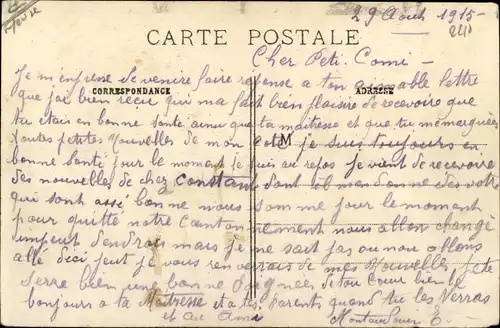 29 Août 1915-
CARTE POSTALE
Cher Peti. Comi-
Je m'enprese de venire faire reponse a ton aimable lettre
CORRESPONDANCE
ADRESSE
que j'ai bien reçu qui ma fait bien plaisire de recevoire que
tu étais en bonne santé ainsi que ta maitresse et que tu me marquée
toutes petites Nouvelles de mon coté je suis toujours en
M
bonne santé jour le moment je suis au repos je vient de recevoire
des nouvelles de cher Constant dont il men donne des votre
qui sont assé bon ne nous somme jour le moment
pour quitté notre Canton nement nous allon change
unpeut dendroi mais je ne sait pas ou nou allons
allé dici peut je vous renverrais de mes Nouvelles jete
serre bien une bonne de tou Cœur bien le
bonjours a ta Maitresse et a tes parents quand tu les Verras
et au Ami